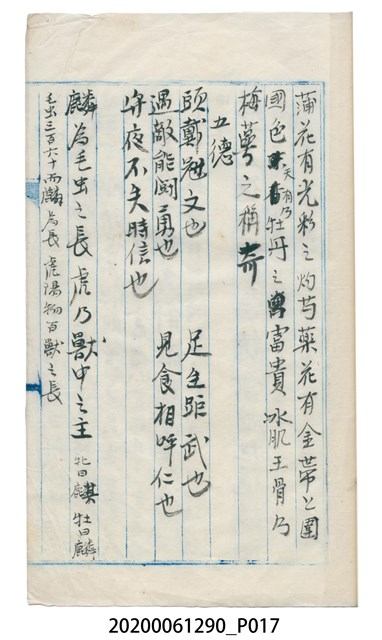 蒲花有光彩之灼芍藥花有金帶之圍
國色天香乃牡丹之富貴冰肌玉骨乃
梅萼之稱奇
五德
頭戴冠文也 足生距武也
遇敵能鬪勇也 見食相呼仁也
守夜不失時信也
麟為毛虫之長虎乃獸中之主 牝曰麒牡曰麟
毛虫三百六十而麟為長虎陽物百獸之長
20200061290_P017